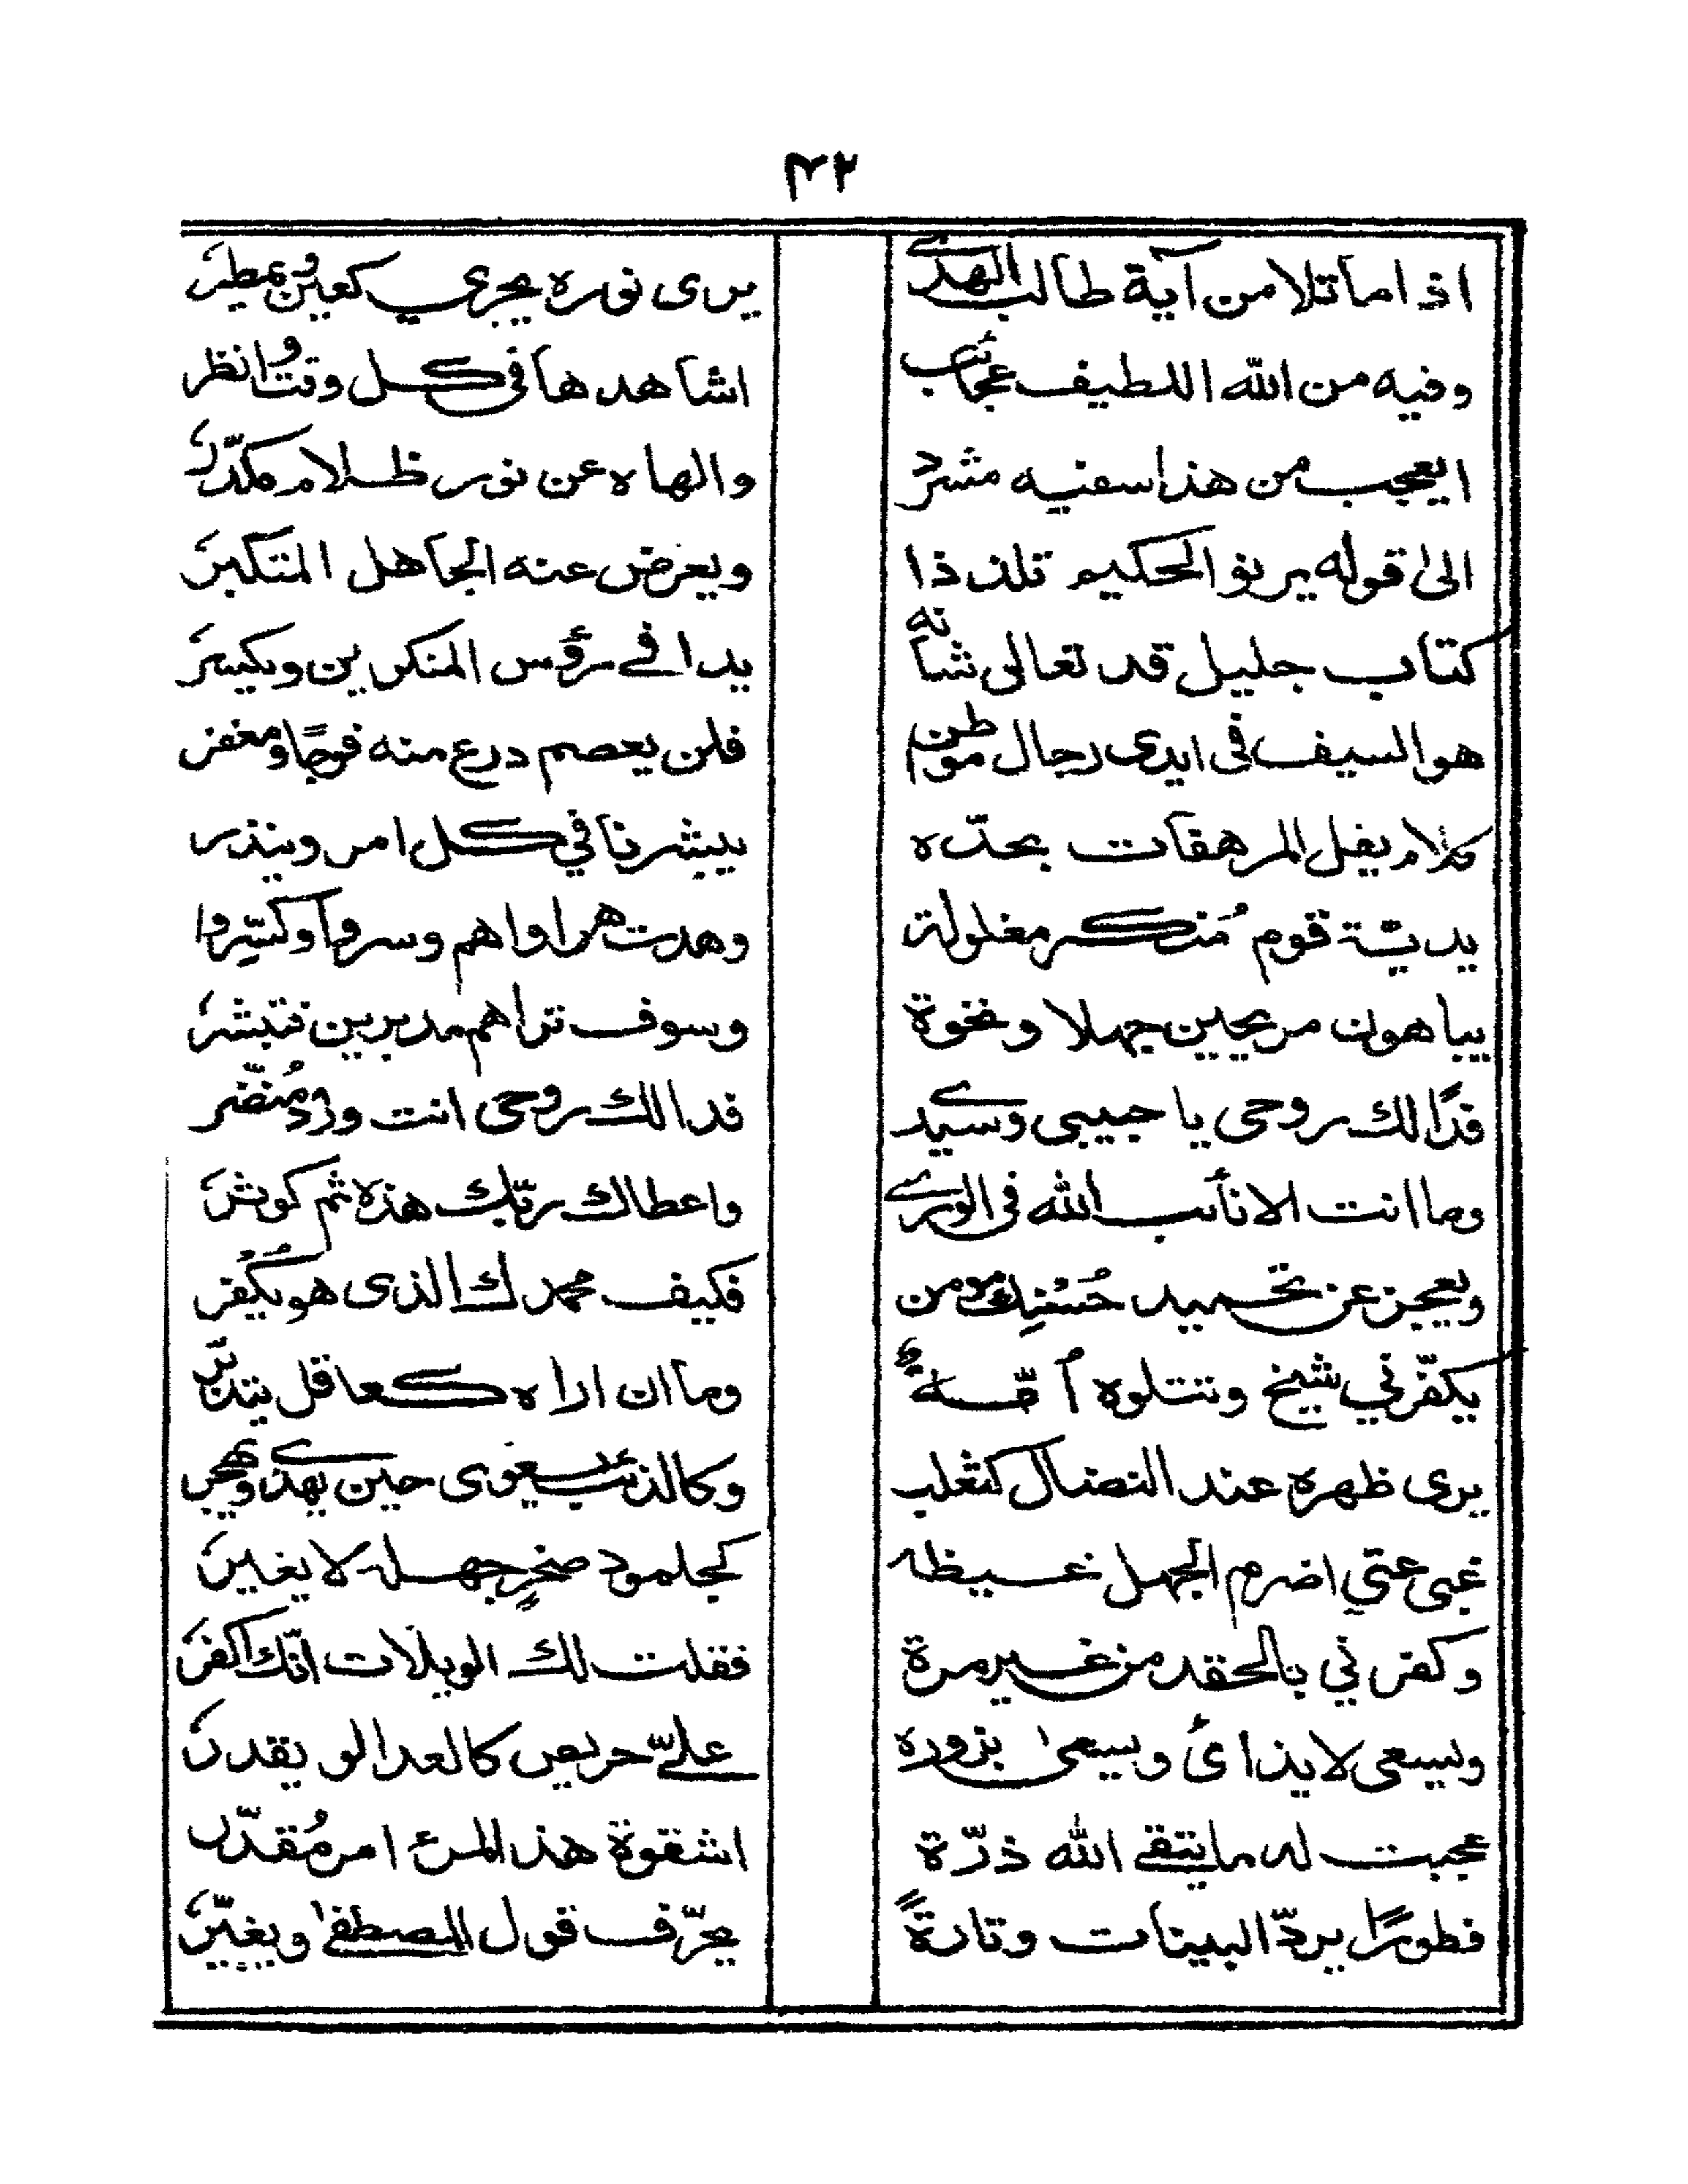 ۴۲
اذا ما تلا من آية طالب الهدى يرى نوره يجري كعين ويمطر
وفيه من الله اللطيف عجائب اشاهدها في كل وقت وانظر
ايعجب من هذا سفيه مشرد والهاه عن نور ظلام مكدّر
الى قوله يرنو الحكيم تلذذا ويعرض عنه الجاهل المتكبر
كتاب جليل قد تعالى شانه يدافي رؤس المنكرين ويكسر
هو السيف في ايدى رجال مواطن فلن يعصم درع منه فوجًا ومغفر
كلام يفل المرهقات بحدّه يبشرنا في كل امر وينذر
يديّة قوم مُنكر مغلولة وهدت هراواهم وسروا وكسّروا
يباهون مريحين جهلا ونخوة وسوف تراهم مدبرين فتبشر
فدًا لك روحى يا حبيبى وسيدي فدا لك روحى انت وردٌ مُنضّر
وما انت الا نائب الله في الورى واعطاك ربّك هذه ثم كوثر
ويعجز عن تحميد حُسنك مومن فكيف محمدك الذى هو يُكفر
يكفّرني شيخ وتتلوه اُمّة وما ان اراه كعاقل يتدبّر
يرى ظهره عند النضال كثعلب وكالذئب يعوى حين يهذى ويهجر
غبى عتي اضرم الجهل غيظه كجلمود صخرٍ جهله لا يغير
وكفرني بالحقد من غير مرة فقلت لك الويلات انّك اكفر
ويسعى لايذائى ويسعى بزوره علىّ حريص كالعدا لو يقدر
عجبت له ما يتقي الله ذرّة اشقوة هذا المرء امر مُقدّر
فطورًا يردّ البينات وتارةً يحرّف قول المصطفى ويغيّر